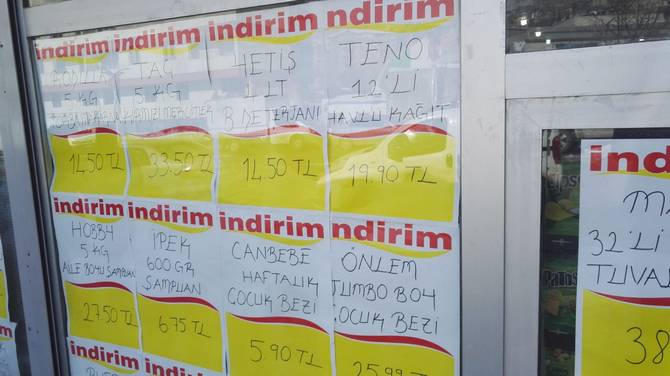 indirim
TAG
5 KG
KIRMIZI MERCİMEK
33.50 TL
indirim
YETİŞ
4 LT
B. DETERJANI
14.50 TL
ndirim
TENO
12 Lİ
HAVLU KAĞIT
19.90 TL
indirim
5 KG
14.50 TL
indirim
HOBBY
5 KG
AİLE BOYU ŞAMPUAN
27.50 TL
indirim
İPEK
600 GR
ŞAMPUAN
6.75 TL
indirim
CANBEBE
HAFTALIK
ÇOCUK BEZİ
5.90 TL
ndirim
ÖNLEM
JUMBO BOY
ÇOCUK BEZİ
25.99 TL
indirim
indirim
indi
32'Lİ
TUVAL
38